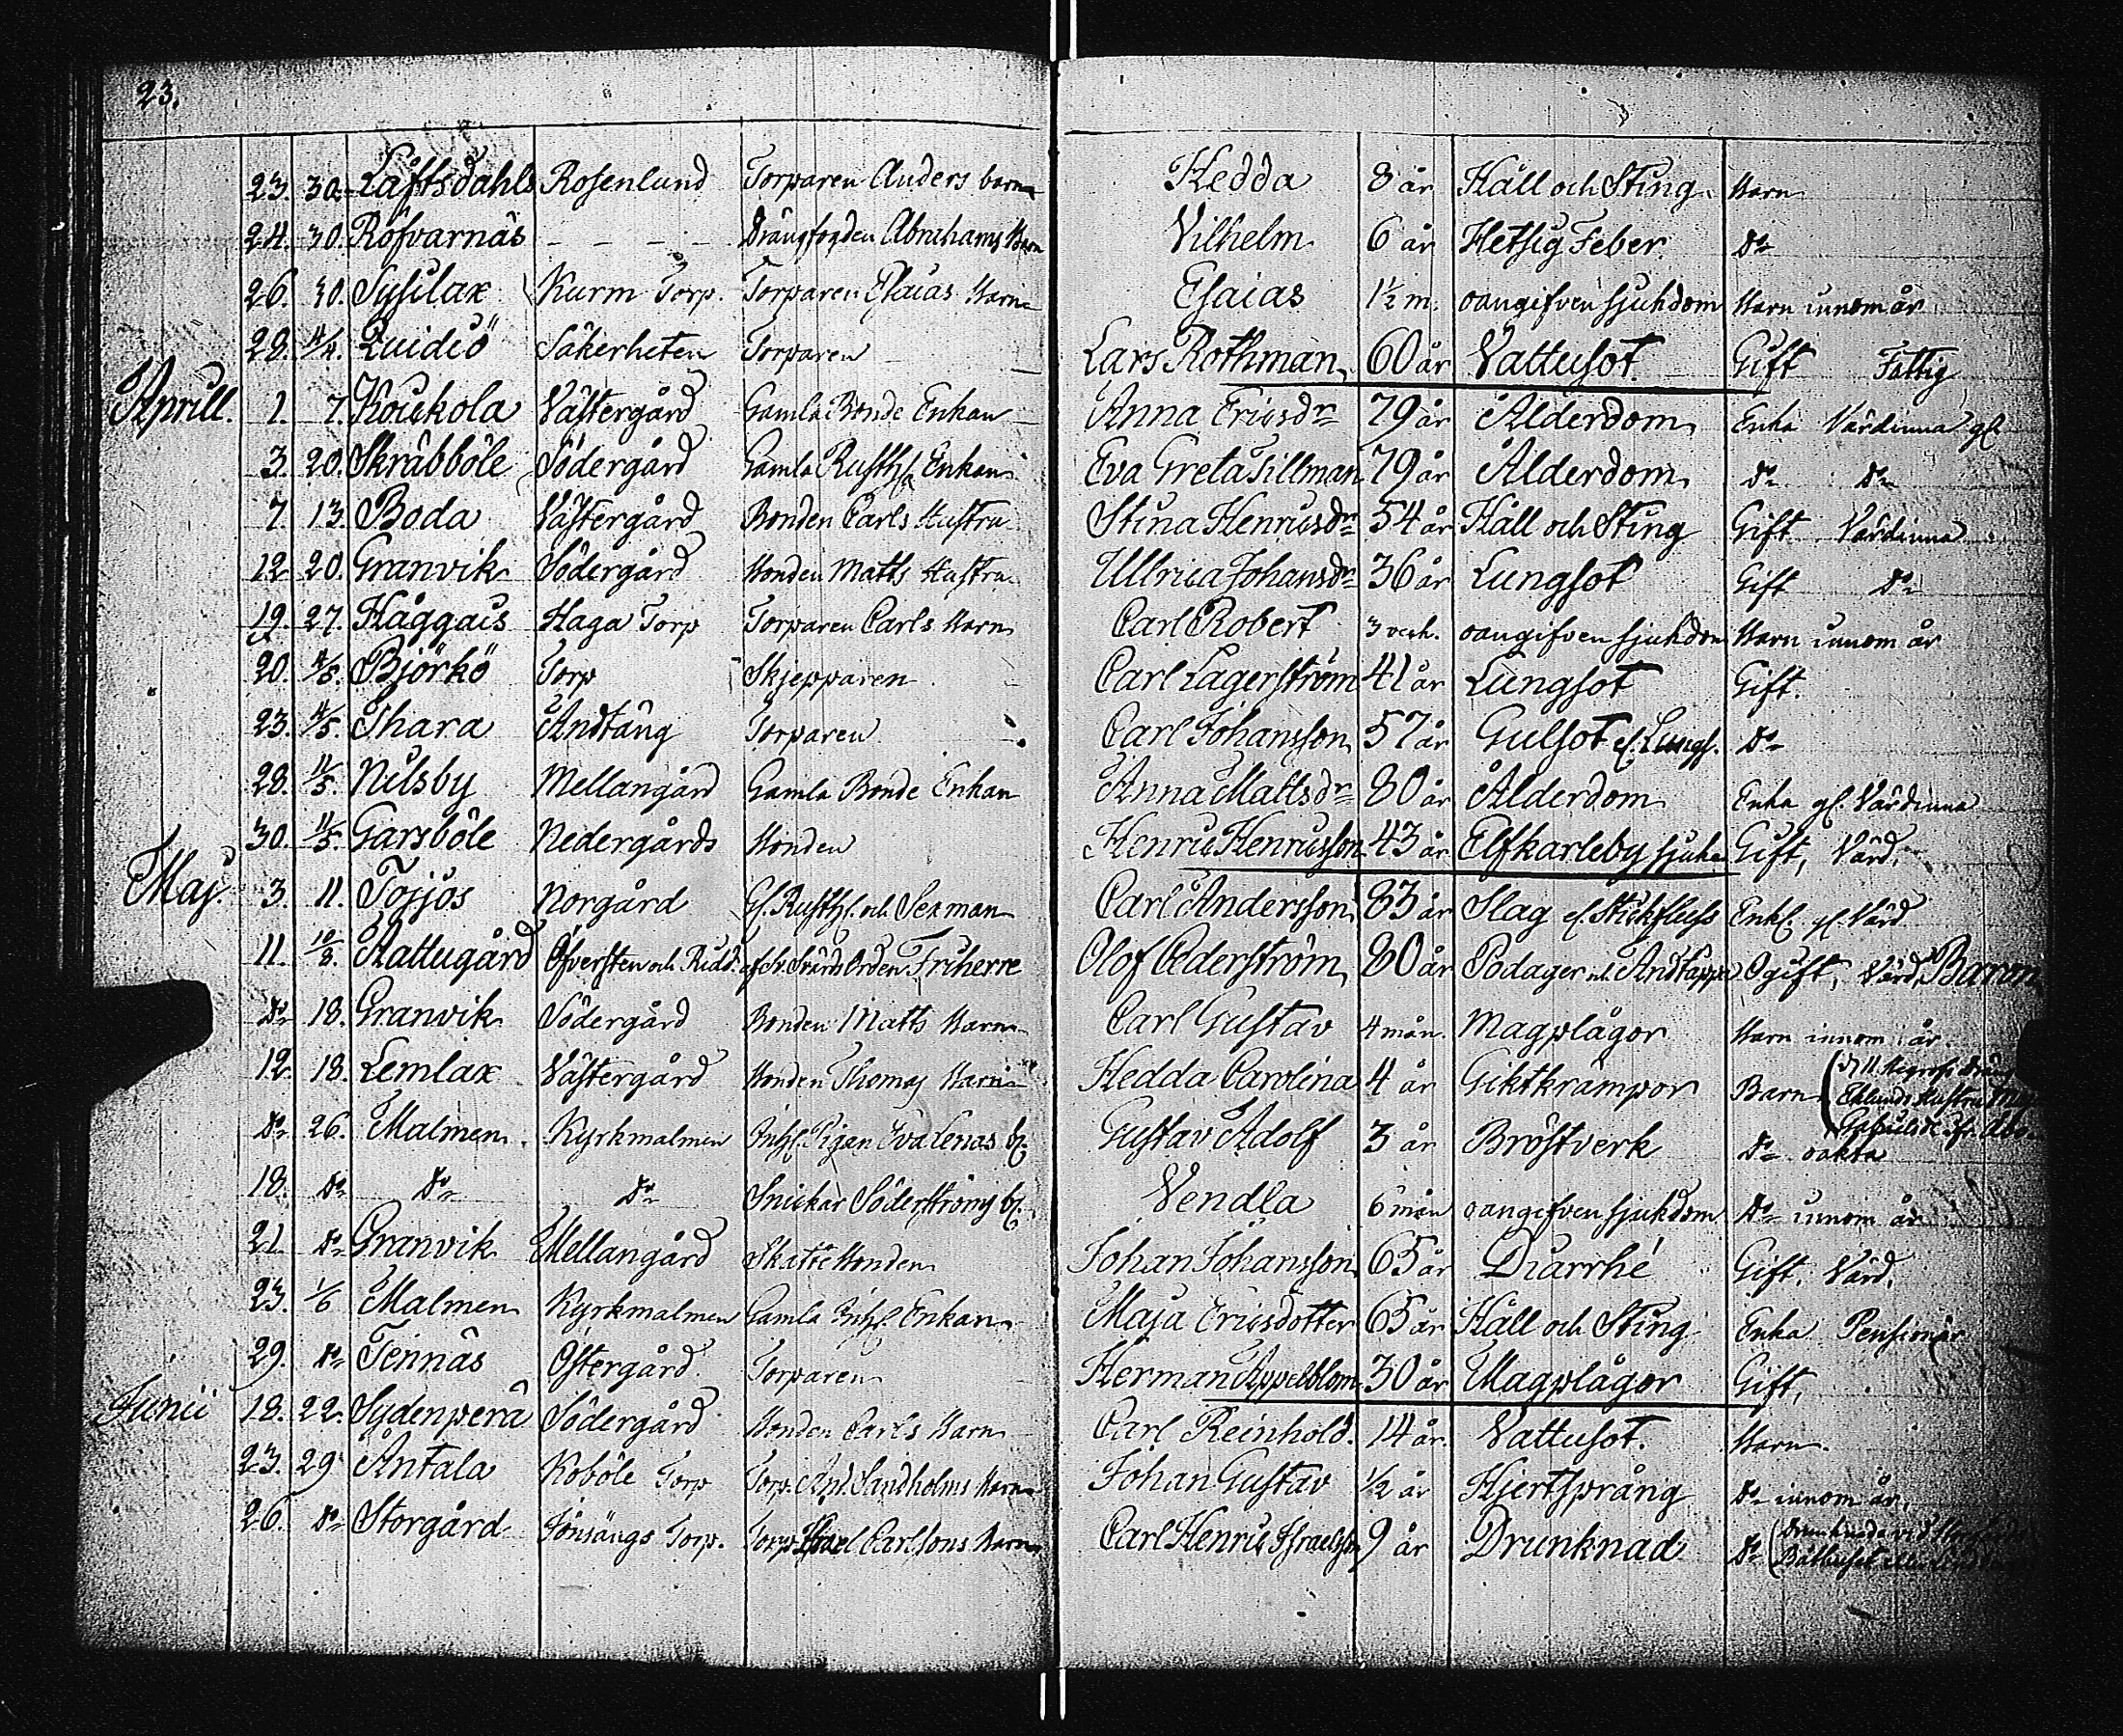 23.
23. 30. Låftsdahls Rosenlund Torparen Anders barn Hedda 8 år Håll och Sting Barn
24. 30. Röfvarnäs - - - - Drängfogden Abrahams Barn Vilhelm 6 år Hetsig Feber. Do
26. 30. Sysilax Kurm Torp. Torparen Esaias Barn Esaias 1½ m. oangifven sjukdom Barn innom år
28. 4/4. Qvidiö Säkerheten Torparen Lars Rothman 60 år Vattusot. Gift Fattig
Aprill. 1. 7. Koukola Västergård Gamla Bonde Enkan Anna Ericsdr 79 år Ålderdom Enka Värdinna gl.
3. 20. Skräbböle Södergård Gamla Rusth. Enkan Eva Greta Tillman 79 år Ålderdom do do
7. 13. Boda Västergård Bonden Carls Hustru Stina Henricsdr 54 år Håll och Sting Gift Värdinna
12. 20. Granvik Södergård Bonden Matts Hustru Ullrica Johansdr 36 år Lungsot Gift Do
19. 27. Haggais Haga Torp Torparen Carls Barn Carl Robert 3 veck. oangifven sjukdom Barn innom år
20. 4/5. Björkö Torp Skjepparen Carl Lagerström 41 år Lungsot Gift.
23. 4/5. Ihara Andtäng Torparen Carl Johansson 57 år Gulsot el. Lungs. Do
28. 11/5. Nilsby Mellangård Gamla Bonde Enkan Anna Mattsdr 80 år Ålderdom Enka gl. Värdinna
30. 11/5. Garsböle Nedergårds Bonden Henric Henricsson 43 år Elfkarleby sjuka Gift, Värd.
Maj. 3. 11. Tojjos Norgård Gl. Rusth. och Sexman Carl Andersson 83 år Slag el. Stickfluss Enkl. gl. Värd
11. 18/5. Attugård Öfversten och Ridd. af Sv. Svärds Orden Friherre Olof Cederström 80 år Podager och Andtäppa Ogift, Värd, Baron
Do 18. Granvik Södergård Bonden Matts Barn Carl Gustav 4 mån. Magplågor Barn innom år.
12. 18. Lemlax Västergård Bonden Thomas Barn Hedda Carolina 4 år Giktkrämpor Barn
Eklunds Hustru
Do 26. Malmen Kyrkmalmen Inh. Pigan Eva Lenas b. Gustav Adolf 3 år Bröstverk Do oäkta
18. Do Do Do Snickar Söderströms b. Vendla 6 mån oangifven sjukdom Do innom år
21. Do Granvik Mellangård Skatte Bonden Johan Johansson 65 år Diarrhé Gift. Värd.
23. 1/6 Malmen Kyrkmalmen Gamla Inh. Enkan Maja Ericsdotter 65 år Håll och Sting Enka Pensionär
29. Do Tennäs Östergård Torparen Herman Appelblom 30 år Magplågor Gift,
Junii 18. 22. Sydenperä Södergård Bonden Carls Barn Carl Reinhold. 14 år. Vattusot. Barn.
23. 29 Antala Koböle Torp Torp. And. Sandholms Barn Johan Gustav ½ år Hjertsprång Do innom år.
26. Do Storgård Jönsängs Torp. Torp. Israel Carlsons Barn Carl Henric Israelsson 9 år Drunknad Do